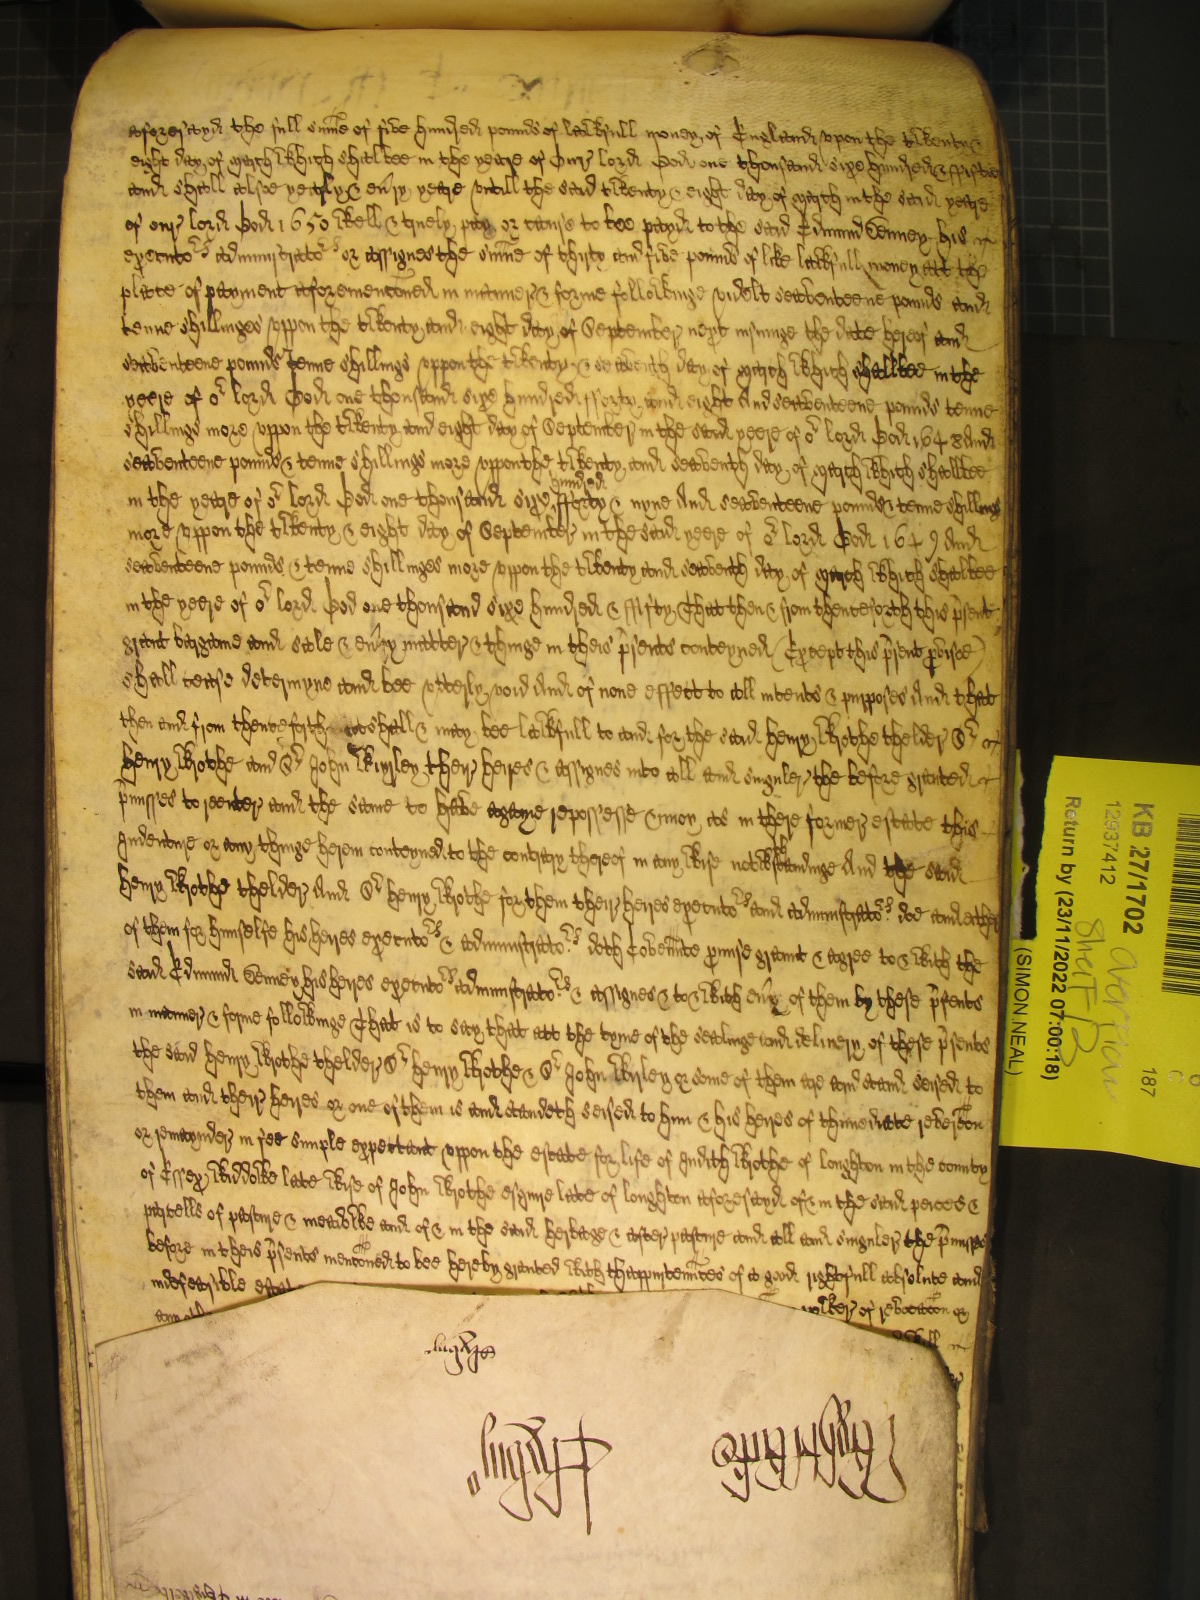 aforesayd the full sume of five hundred pounds of lawfull money of England upon the twenty &
eight day of March which shalbee in the yeare of our lord God one thousand sixe hundred & fiftie
and shall alsoe yearly & every yeare untill the said twenty & eight day of March in the said yeare
of our lord God 1650 well & truely pay or cause to bee payd to the said Edmund Denney his
executors administrators or assignes the sume of thirty and five pounds of like lawfull money att the
place of payment aforementoned in manner & forme followinge videlt seaventeene pounds and
tenne shillinges uppon the twenty and eight day of September next insuinge the date hereof and
seaventeene pounds tenne shillings uppon the twenty & seaventh day of March which shallbee in the
yeere of or lord God one thousand sixe hundred fforty and eight And seaventeene pounds tenne
shillings more uppon the twenty and eight day of September in the said yeere of or lord God 1648 And
seaventeene pounds & tenne shillings more uppon the twenty and seaventh day of March which shallbee
in the yeare of or lord God one thousand sixe hundred fforty & nyne And seaventeene pounds & tenne shillings
more uppon the twenty & eight day of September in the said yeere of or lord God 1649 And
seaventeene pounds & tenne shillinges more uppon the twenty and seaventh day of March which shalbee
in the yeere of or lord God one thousand sixe hundred & ffifty That then & from thenceforth this psent
graunt bargaine and sale & every matter & thinge in theis psents conteyned (Except this psent pvisoe)
shall cease determyne and bee utterly void And of none effect to all intents & purposes And that
then and from thenceforth itt shall & may bee lawfull to and for the said Henry Wrothe thelder Sr
Henry Wrothe and Sr John their heires & assignes into all and singuler the before graunted
pmisses to reenter and the same to have againe repossesse & injoy as in there former estate this
Indenture or any thinge herein conteyned to the contrary thereof in any wise notwthstandinge And the said
Henry Wrothe thelder And Sr Henry Wrothe for them their heires executors and administrators doe and either
of them for himselfe his heires executors & administrators doth Covennte promise graunt & agree to & with the
said Edmund Denney his heires executors administrators & assignes & to & with every of them by these psents
in manner & forme followinge That is to say that att the tyme of the sealinge and delivery of these psents
the said Henry Wrothe thelder Sr Henry Wrothe & Sr John or some of them are and stand seised to
them and their heires or one of them is and standeth seised to him & his heires of thimediate revercon
or remaynder in fee simple expectant uppon the estate for life of Judith Wrothe of Loughton in the county
of Essex widdowe late wife of John Wrothe esquire late of Loughton aforesayd of & in the said peeces &
parcells of pasture & meadowe and of & in the said herbage & after pasture and all and singuler the pmisses
before in theis psents mentoned to bee hereby graunted with thappurtennces of a good rightfull absolute and
indefeasible estate power of revocaton or
any
KB 27/1702
12937412
Return by (23/11/2022 07:00:18)
(SIMON NEAL)
187